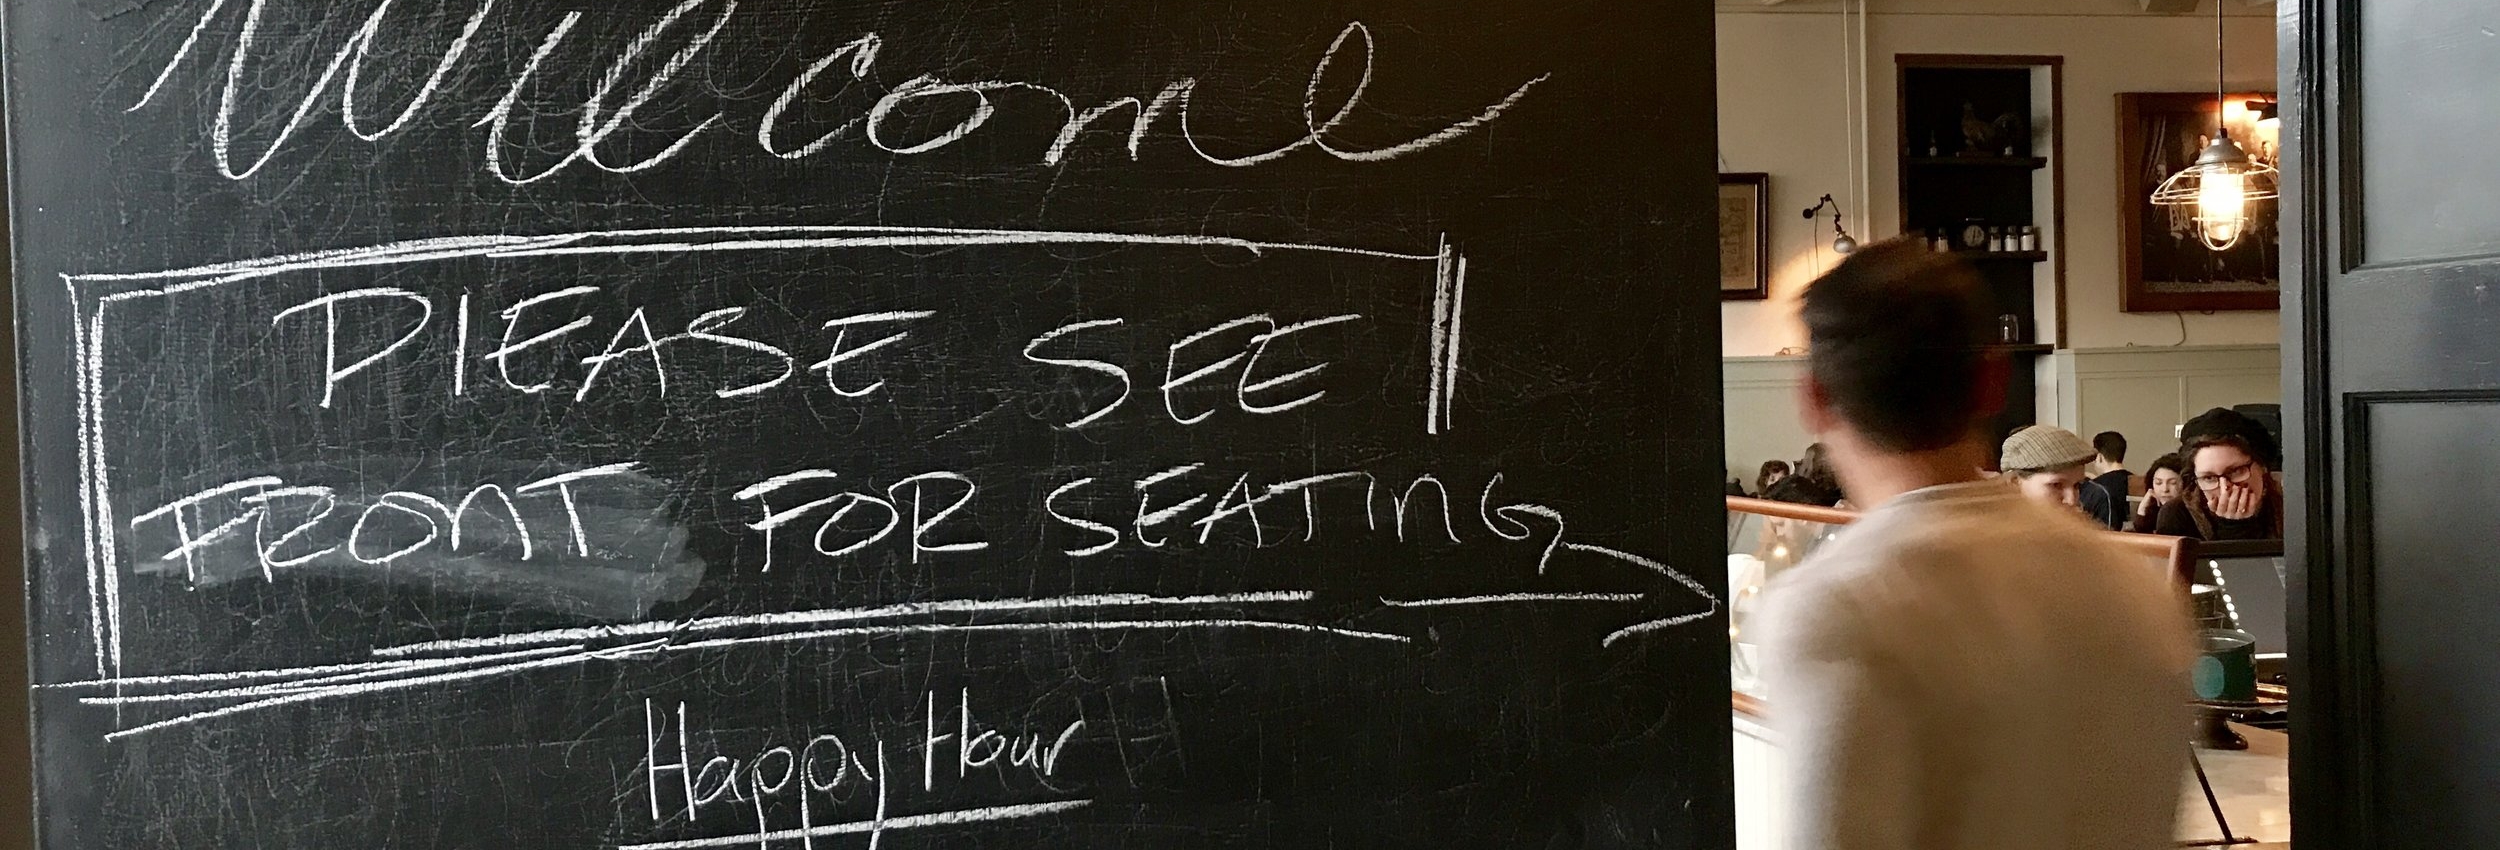 Welcome
PLEASE SEE
FRONT FOR SEATING
Happy Hour